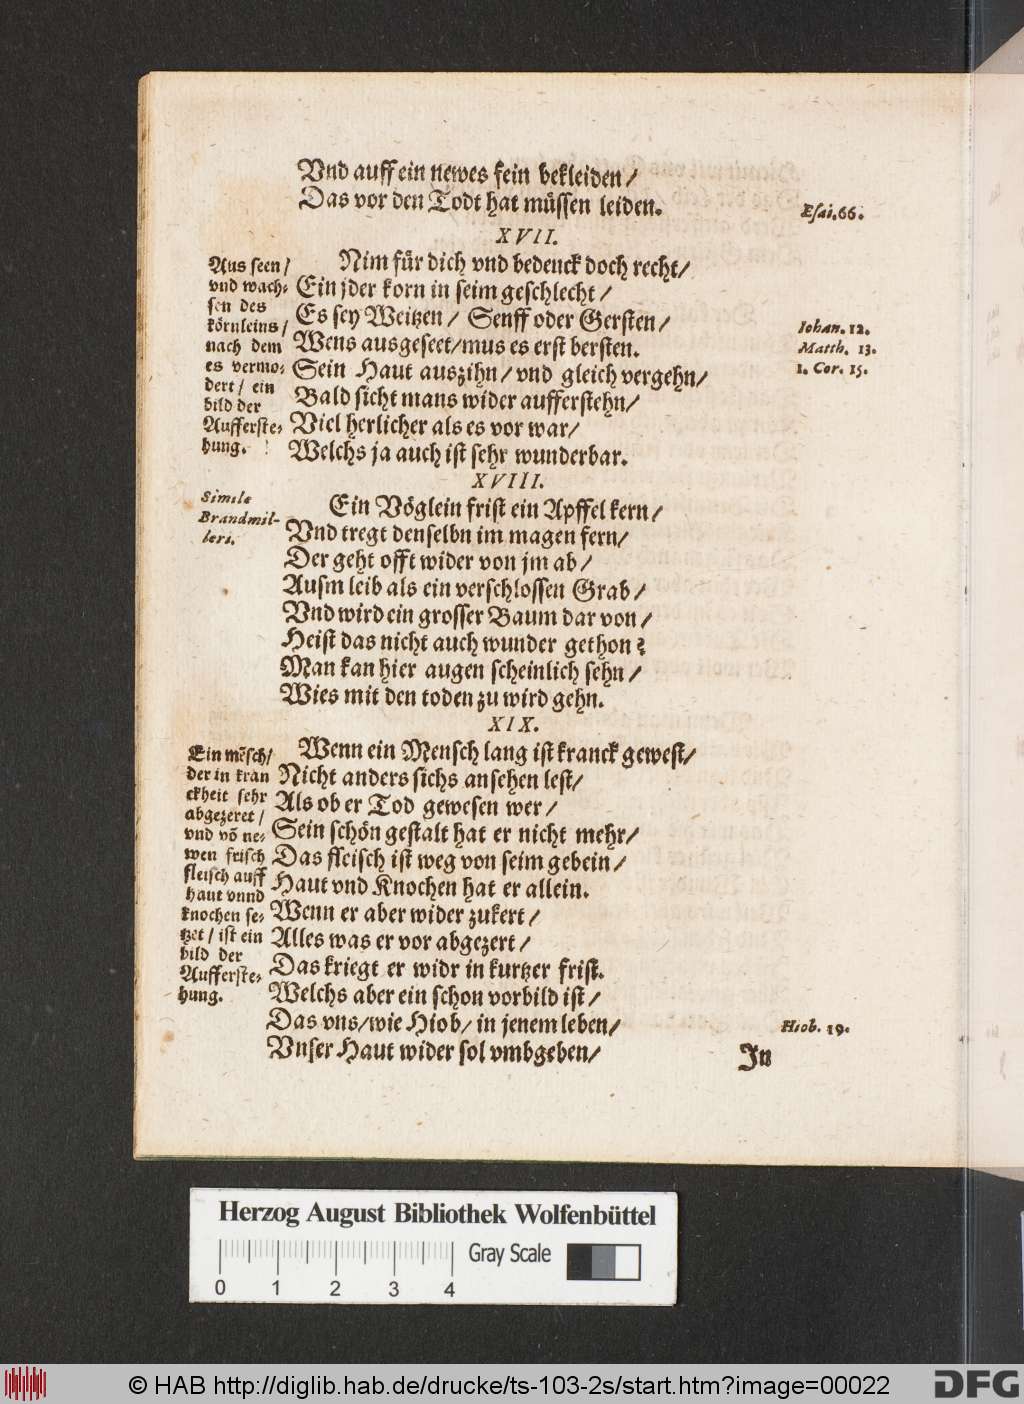 Vnd auff ein newes fein bekleiden /
Das vor den Todt hat müssen leiden.
Esai. 66.
XVII.
Aus seen /
vnd wach-
sen des
körnleins /
nach dem
es vermo-
dert / ein
bild der
Aufferste-
hung.
Nim für dich vnd bedenck doch recht /
Ein jder korn in seim geschlecht /
Es sey Weitzen / Senff oder Gersten /
Wens ausgeseet / mus es erst bersten.
Sein Haut auszihn / vnd gleich vergehn /
Bald sicht mans wider aufferstehn /
Viel herlicher als es vor war /
Welchs ja auch ist sehr wunderbar.
Iohan. 12.
Matth. 13.
1. Cor. 15.
XVIII.
Simile
Brandmil-
leri.
Ein Vöglein frist ein Apffel kern /
Vnd tregt denselbn im magen fern /
Der geht offt wider von jm ab /
Ausm leib als ein verschlossen Grab /
Vnd wird ein grosser Baum dar von /
Heist das nicht auch wunder gethon?
Man kan hier augen scheinlich sehn /
Wies mit den toden zu wird gehn.
XIX.
Ein mẽsch /
der in kran
ckheit sehr
abgezeret /
vnd võ ne-
wen frisch
fleisch auff
haut vnnd
knochen se-
tzet / ist ein
bild der
Aufferste-
hung.
Wenn ein Mensch lang ist kranck gewest /
Nicht anders sichs ansehen lest /
Als ob er Tod gewesen wer /
Sein schön gestalt hat er nicht mehr /
Das fleisch ist weg von seim gebein /
Haut vnd Knochen hat er allein.
Wenn er aber wider zukert /
Alles was er vor abgezert /
Das kriegt er widr in kurtzer frist.
Welchs aber ein schon vorbild ist /
Das vns / wie Hiob / in jenem leben /
Vnser Haut wider sol vmbgeben /
Hiob. 19.
In
Herzog August Bibliothek Wolfenbüttel
Gray Scale
0 1 2 3 4
© HAB http://diglib.hab.de/drucke/ts-103-2s/start.htm?image=00022
DFG